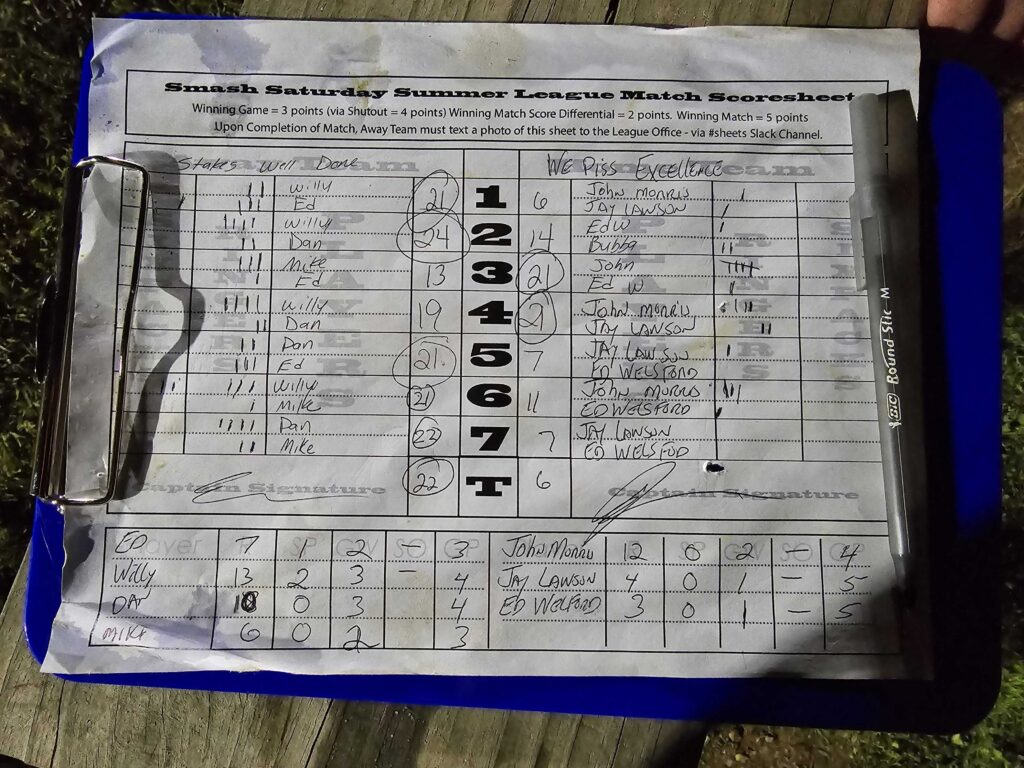 Smash Saturday Summer League Match Scoresheet
Winning Game = 3 points (via Shutout = 4 points) Winning Match Score Differential = 2 points. Winning Match = 5 points
Upon Completion of Match, Away Team must text a photo of this sheet to the League Office - via #sheets Slack Channel.
Stakes Well Done WE PISS EXCELLENCE
Willy 21 1 6 John Morris
Ed JAY LAWSON
Willy 24 2 14 Ed W
Dan Bubba
Mike 13 3 21 John
Ed Ed W
Willy 19 4 21 John Morris
Dan JAY LAWSON
Dan 21 5 7 JAY LAWSON
Ed ED WELSFORD
Willy 21 6 11 John Morris
Mike ED WELSFORD
Dan 22 7 7 JAY LAWSON
Mike ED WELSFOD
Captain Signature 22 T 6 Captain Signature
ED 7 1 2 — 3 John Morris 12 0 2 — 4
Willy 13 2 3 — 4 JAY LAWSON 4 0 1 — 5
DAN 0 3 4 ED WELFORD 3 0 1 — 5
MIKE 6 0 2 3
BIC Round Stic-M